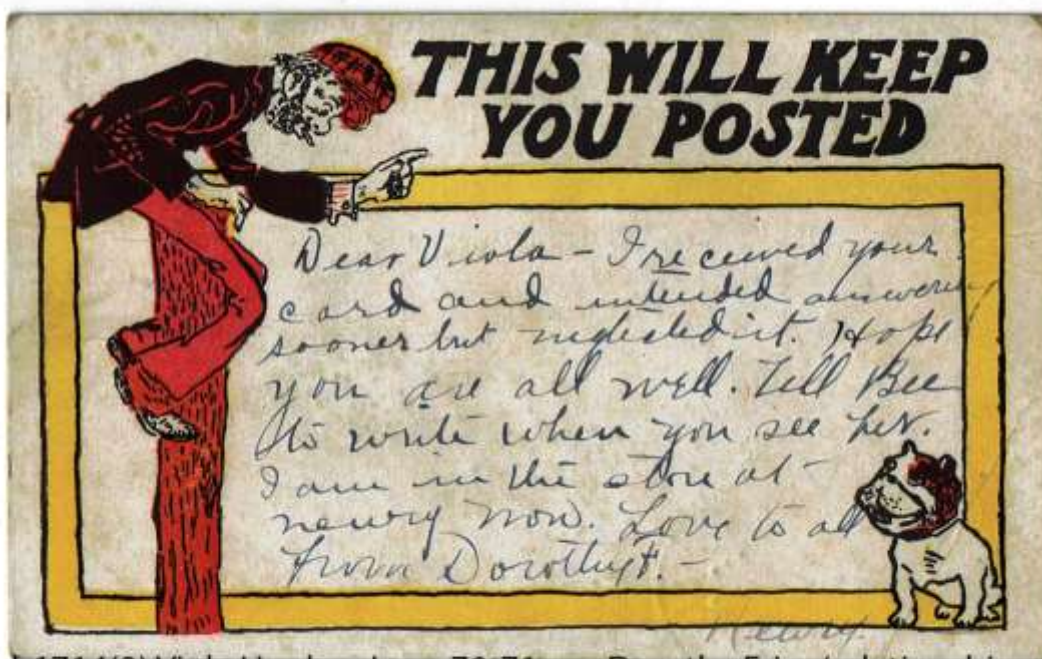 THIS WILL KEEP
YOU POSTED
Dear Viola – I received your
card and intended answering
sooner but neglected it. Hope
you are all well. Tell Bee
to write when you see her.
I am in the store at
newry now. Love to all
from Dorothy F. –
Newry.